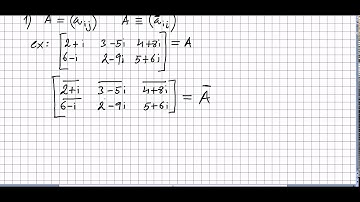 1) A = (a_ij)  Ā ≡ (ā_ij)
ex: [2+i 3-5i 4+8i] = A
[6-i 2-9i 5+6i]
[2̅+̅i̅ 3̅-̅5̅i̅ 4̅+̅8̅i̅] = Ā
[6̅-̅i̅ 2̅-̅9̅i̅ 5̅+̅6̅i̅]